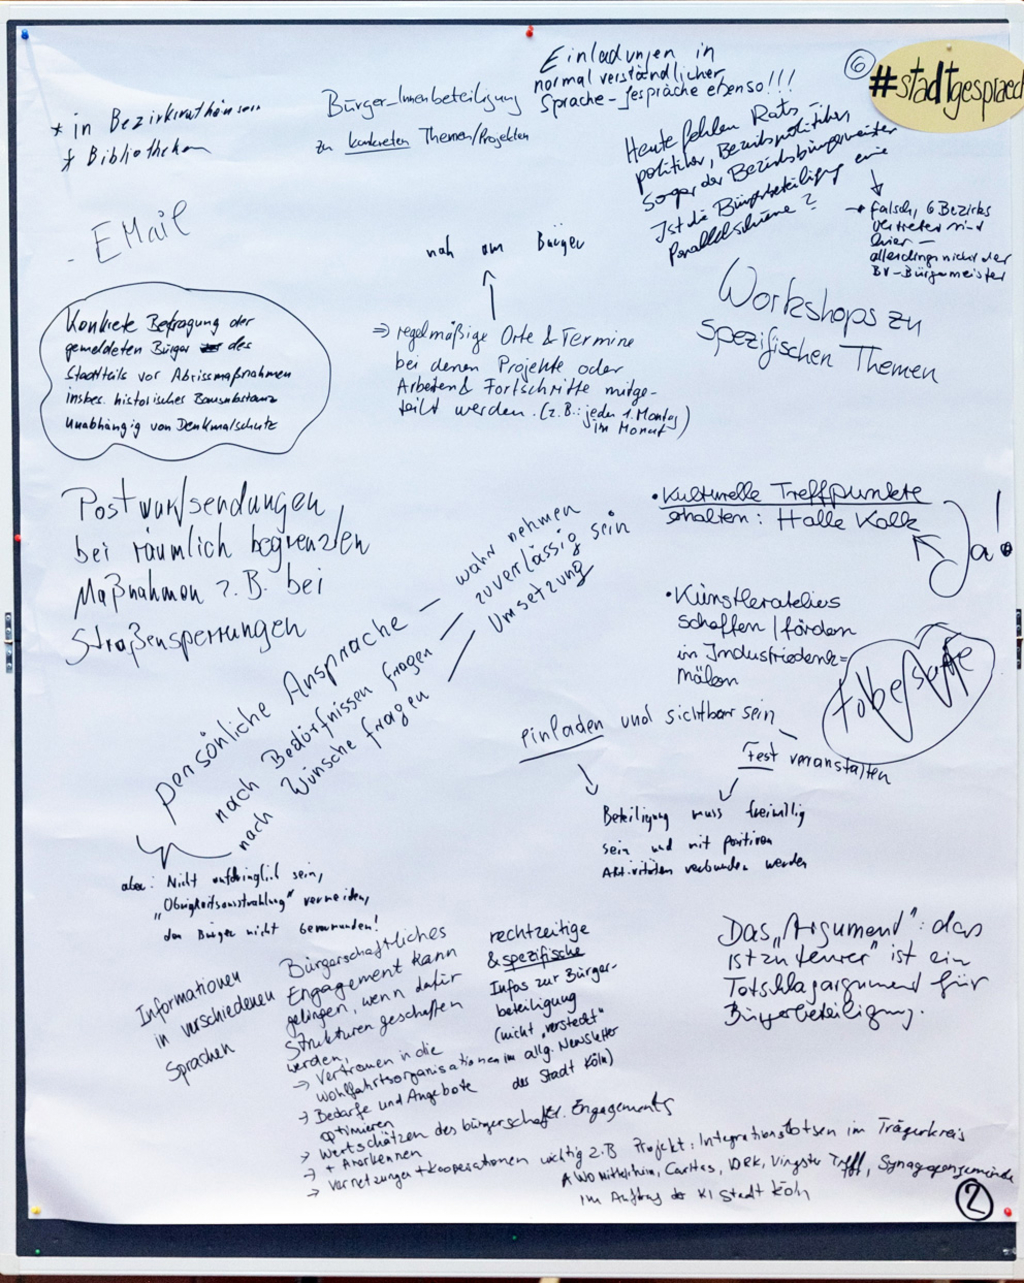 * in Bezirksrathäusern
* Bibliotheken
Bürger_Innenbeteiligung
zu konkreten Themen/Projekten
Einladungen in
normal verständlicher
Sprache - Gespräche ebenso!!!
6
#stadtgespraech
Heute fehlen Rats
politiker, Bezirkspolitiker,
Sogar der Bezirksbürgermeister
Ist die Bürgerbeteiligung eine
Parallelschiene?
→ falsch, 6 Bezirks
vertreter sind
hier -
allerdings nicht der
BV-Bürgermeister
- EMail
nah am Bürger
⇒ regelmäßige Orte & Termine
bei denen Projekte oder
Arbeiten & Fortschritte mitge-
teilt werden. (z.B.: jeden 1. Montag
im Monat)
Workshops zu
spezifischen Themen
Konkrete Befragung der
gemeldeten Bürger des
Stadtteils vor Abrissmaßnahmen
insbes. historisches Bausubstanz
unabhängig von Denkmalschutz
Postwurfsendungen
bei räumlich begrenzten
Maßnahmen z.B. bei
Straßensperrungen
• Kulturelle Treffpunkte
erhalten: Halle Kalk
Ja!
• Künstlerateliers
schaffen/fördern
in Industriedenk=
mälern
persönliche Ansprache — wahrnehmen
nach Bedürfnissen fragen — zuverlässig sein
nach Wünsche fragen — Umsetzung
aber: Nicht aufdringlich sein,
"Obrigkeitsausstrahlung" vermeiden,
den Bürger nicht bevormunden!
einladen und sichtbar sein
Fest veranstalten
Beteiligung muss freiwillig
sein und mit positiven
Aktivitäten verbunden werden
Informationen
in verschiedenen
Sprachen
Bürgerschaftliches
Engagement kann
gelingen, wenn dafür
Strukturen geschaffen
werden,
→ Vertrauen in die
Wohlfahrtsorganisationen
→ Bedarfe und Angebote
optimieren
→ Wertschätzen des bürgerschaftl. Engagements
+ Anerkennen
→ Vernetzungen + Kooperationen wichtig z.B Projekt: Integrationslotsen im Trägerkreis
AWO Mittelrhein, Caritas, DRK, Vingster Treff, Synagogengemeinde
im Auftrag der KI Stadt Köln
rechtzeitige
& spezifische
Infos zur Bürger-
beteiligung
(nicht "versteckt"
im allg. Newsletter
der Stadt Köln)
Das "Argument": das
ist zu teuer" ist ein
Totschlagargument für
Bürgerbeteiligung.
2